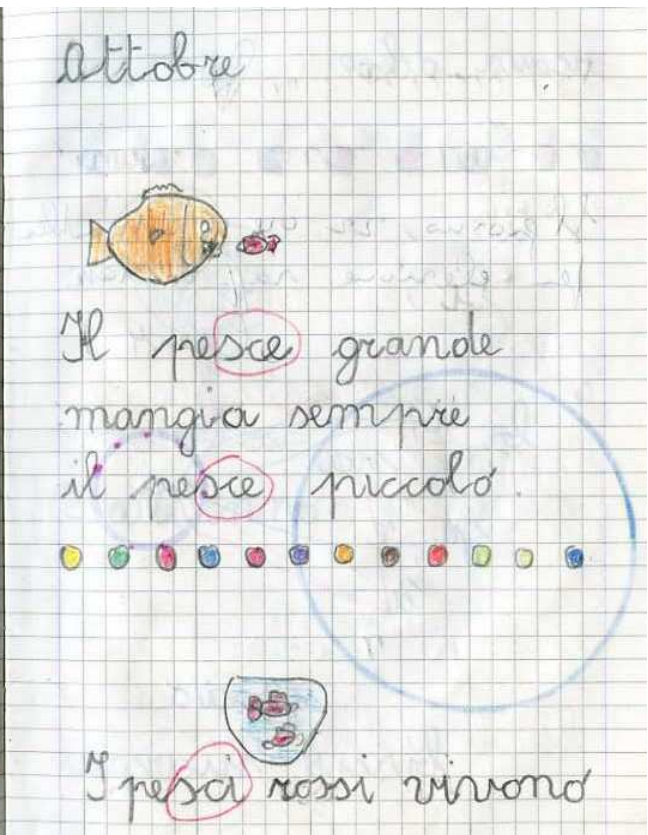 Ottobre
Il pesce grande
mangia sempre
il pesce piccolo.
I pesci rossi vivono